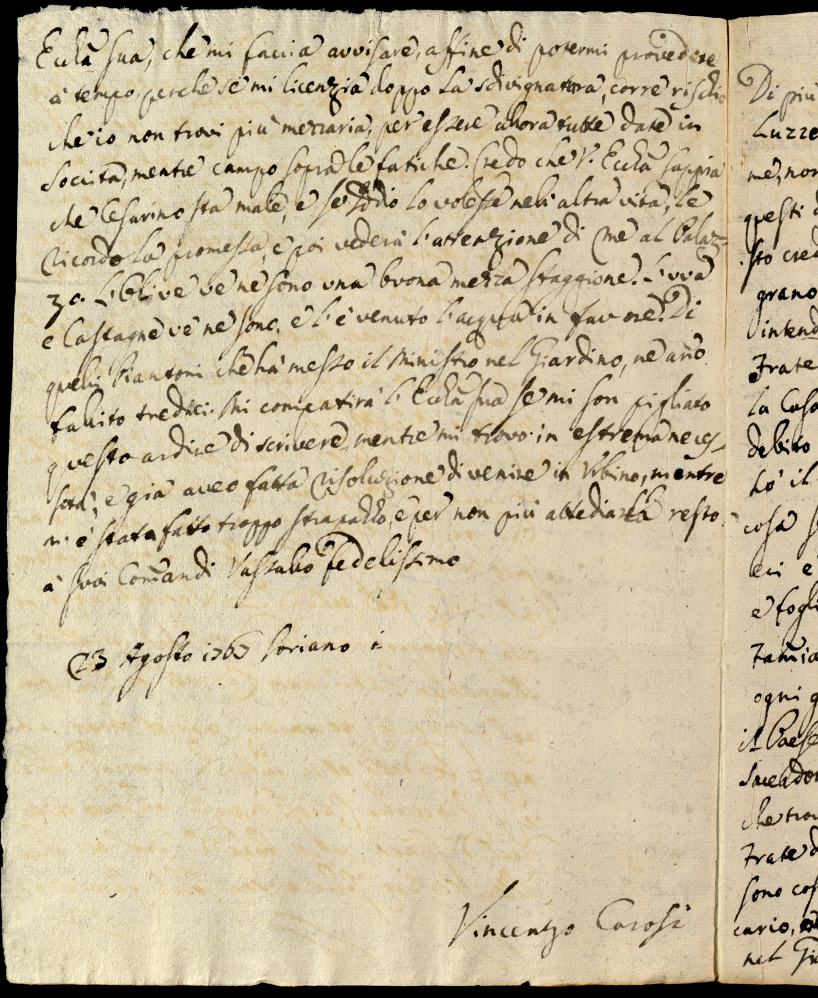 Ecclã sua, che mi faccia avvisare, affine di potermi provedere
à tempo, perche se mi licenzia doppo la sdivignatora, corre rischio
che io non trovi più mezzaria, per essere allora tutte date in
Società, mentre campo sopra le fatiche. Credo che V. Ecclã sappia
che Cesarino sta male, e se Iddio lo volesse nell'altra vita, le
ricordo la promessa, e poi vederà l'attenzione di me al Palaz-
zo. L'Olive ve ne sono una buona mezza staggione. L'uva
e Castagne ve ne sono, e l'è venuto l'acqua in favore. Di
quelli Piantoni che hà messo il Ministro nel Giardino, ne anno
fallito tredici. Mi compatirà l'Ecclã sua se mi son pigliato
questo ardire di scrivere, mentre mi trovo in estrema neces-
sità, e già aveo fatta risoluzione di venire in Urbino, mentre
m'è stato fatto troppo strapazzo, e per non più attediarla resto
à suoi Comandi Vassallo fedelissimo
23 Agosto 1767 Soriano
Vincenzo Carosi
Di più
Luzze
me, non
questi
sto cred
grano
intend
Frate
la Casa
debito
hò il
cosa
eci e
e fogli
ogni
il Paese
che trov
Frate d
sono cos
cario,
nel Gia